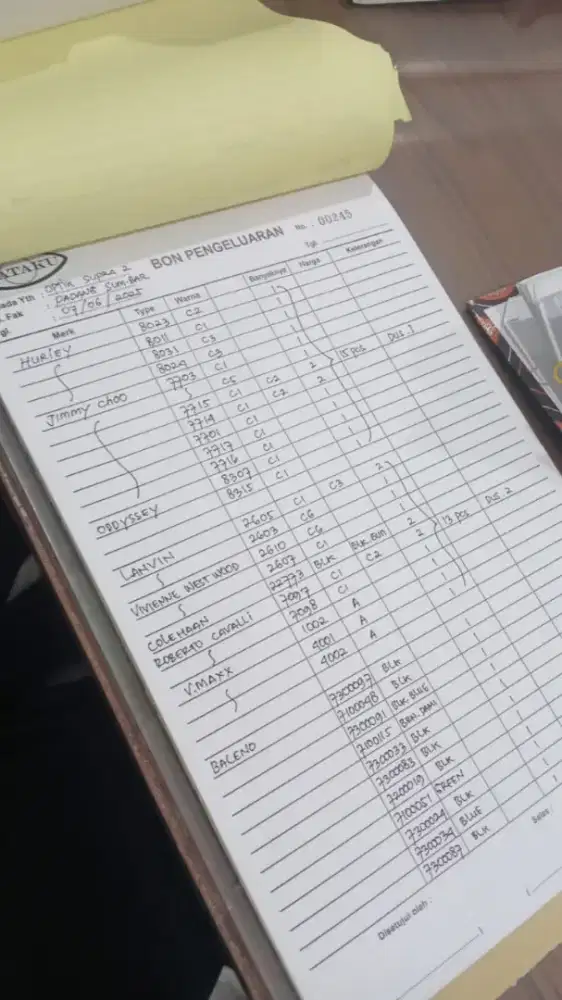 ATAKU
BON PENGELUARAN No. : 00245
ada Yth : OPTIK SUPRA 2
PADANG SUM-BAR Tgl :
. Fak : 07/06/2025
gl
Merk Type Warna Banyaknya Harga Keterangan
HURLEY 8023 C2 1
8011 C1 1
8031 C3 1
8024 C3 1
JIMMY CHOO 7703 C1 1
7715 C5 C2 2 15 pcs DUS. 1
7714 C1 C2 2
7701 C1 1
7717 C1 1
7716 C1 1
8307 C1 1
ODDYSSEY 8315 C1 1
LANVIN 2605 C1 C3 2
2603 C6 1
VIVIENNE WESTWOOD 2610 C6 1
2607 C1 1
COLEHAAN 22773 BLK BLK.GUN 2 13 pcs DUS 2
ROBERTO CAVALLI 7097 C1 C2 2
7098 C1 1
V.MAXX 1002 A 1
4001 A 1
4002 A 1
BALENO 7300097 BLK 1
7100048 BLK 1
7300091 BLK.BLUE 1
7100115 BRN.DEMI 1
7300033 BLK 1
7300083 BLK 1
7200019 BLK 1
7100051 GREEN 1
7300024 BLK 1
7300034 BLUE 1
7300087 BLK 1
Disetujui oleh : Sales :